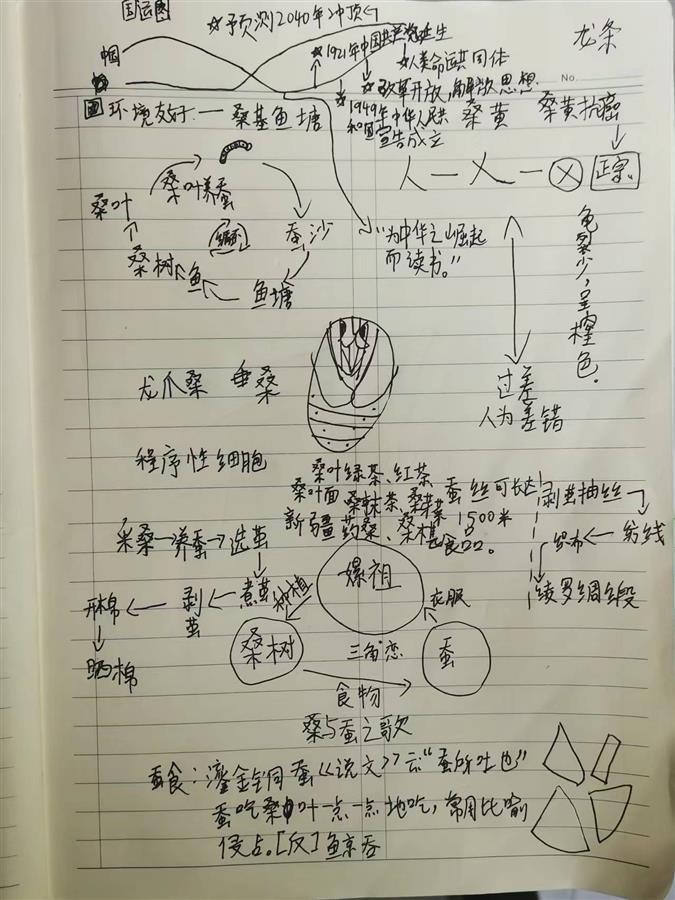 国运图
☆予预测2040年冲顶
中国
☆1921年中国共产党诞生
☆人类命运共同体
龙条
No.
☆改革开放,解放思想.
☆1949年中华人民共
和国宣告成立
桑黄
桑黄抗癌
环境友好:一桑基鱼塘
正宗.
桑叶养蚕
桑叶
蚕沙
循环
桑树
鱼
鱼塘
"为中华之崛起
而读书。"
龟裂少,呈橦色.
过差
人为差错
龙爪桑 垂桑
程序性细胞
桑叶绿茶、红茶
桑叶面、桑抹茶、桑芽菜
新疆药桑、桑椹
食品。
蚕丝可长达
1500米
剥茧抽丝
纺线
织布
绫罗绸缎
采桑→养蚕→选茧
煮茧
剥茧
开棉
晒棉
种植
嫘祖
衣服
桑树
三角恋
蚕
食物
桑与蚕之歌
蚕食:鎏金铜蚕《说文》云"蚕所吐也"
蚕吃桑叶一点一点地吃,常用比喻
侵占。[反]鲸吞